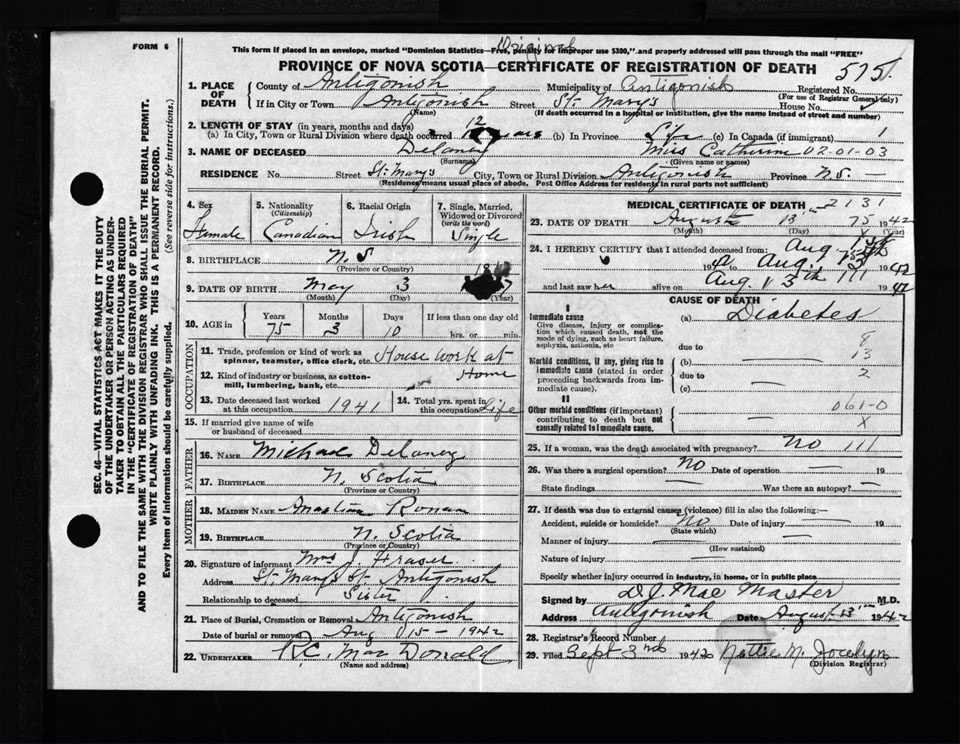 FORM 6
This form if placed in an envelope, marked "Dominion Statistics—Free, penalty for improper use $300," and properly addressed will pass through the mail "FREE"
Original
PROVINCE OF NOVA SCOTIA—CERTIFICATE OF REGISTRATION OF DEATH 575
1. PLACE OF DEATH County of Antigonish Municipality of Antigonish Registered No.
(For use of Registrar General only)
If in City or Town Antigonish Street St. Mary's House No.
(Name) (If death occurred in a hospital or institution, give the name instead of street and number)
2. LENGTH OF STAY (in years, months and days)
(a) In City, Town or Rural Division where death occurred 12 years (b) In Province (c) In Canada (if immigrant)
3. NAME OF DECEASED Delaney Miss Catherine 02-01-03
(Surname) (Given name or names)
RESIDENCE No. Street St. Mary's City, Town or Rural Division Antigonish Province N.S. —
(Residence means usual place of abode. Post Office Address for residents in rural parts not sufficient)
4. Sex Female
5. Nationality (Citizenship) Canadian
6. Racial Origin Irish
7. Single, Married, Widowed or Divorced (write the word) Single
8. BIRTHPLACE N. S
(Province or Country)
9. DATE OF BIRTH May 3
(Month) (Day) (Year)
10. AGE in Years Months Days If less than one day old
75 3 10 hrs. or min.
OCCUPATION
11. Trade, profession or kind of work as spinner, teamster, office clerk, etc. House work at
12. Kind of industry or business, as cotton-mill, lumbering, bank, etc. Home
13. Date deceased last worked at this occupation 1941
14. Total yrs. spent in this occupation Life
15. If married give name of wife or husband of deceased
FATHER
16. NAME Michael Delaney
17. BIRTHPLACE N. Scotia
(Province or Country)
MOTHER
18. MAIDEN NAME Ronan
19. BIRTHPLACE N. Scotia
(Province or Country)
20. Signature of informant Mrs J. Fraser
Address St. Mary's St. Antigonish
Relationship to deceased Sister
21. Place of Burial, Cremation or Removal Antigonish
Date of burial or removal Aug 15 - 1942
22. UNDERTAKER R.C. Mac Donald
(Name and address)
MEDICAL CERTIFICATE OF DEATH 2131
23. DATE OF DEATH August 13th 75 1942
(Month) (Day) X (Year)
24. I HEREBY CERTIFY that I attended deceased from: Aug.
1942 Aug. 13 1942
and last saw her alive on Aug. 13th 1942
CAUSE OF DEATH
I
Immediate cause
Give disease, injury or complication which caused death, not the mode of dying, such as heart failure, asphyxia, asthenia, etc
(a) Diabetes
due to 8
Morbid conditions, if any, giving rise to immediate cause (stated in order proceeding backwards from immediate cause).
(b) — 13
due to 2
(c) —
II
Other morbid conditions (if important) contributing to death but not causally related to immediate cause.
061-0
X
25. If a woman, was the death associated with pregnancy? No 111
26. Was there a surgical operation? No Date of operation — 19
State findings — Was there an autopsy? —
27. If death was due to external causes (violence) fill in also the following:
Accident, suicide or homicide? No Date of injury — 19
(State which)
Manner of injury —
(How sustained)
Nature of injury
Specify whether injury occurred in industry, in home, or in public place
Signed by D.J. Mac Master M.D.
Address Antigonish Date August 13th 1942
28. Registrar's Record Number
29. Filed Sept 3rd 1942 Nattie M. Jocelyn
(Division Registrar)
SEC. 46—VITAL STATISTICS ACT MAKES IT THE DUTY OF THE UNDERTAKER OR PERSON ACTING AS UNDERTAKER TO OBTAIN ALL THE PARTICULARS REQUIRED IN THE "CERTIFICATE OF REGISTRATION OF DEATH"
AND TO FILE THE SAME WITH THE DIVISION REGISTRAR WHO SHALL ISSUE THE BURIAL PERMIT.
WRITE PLAINLY WITH UNFADING INK. THIS IS A PERMANENT RECORD.
Every item of information should be carefully supplied. (See reverse side for instructions.)